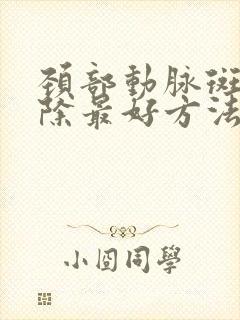 頚部動脉斑
除最好方法
小囧同學